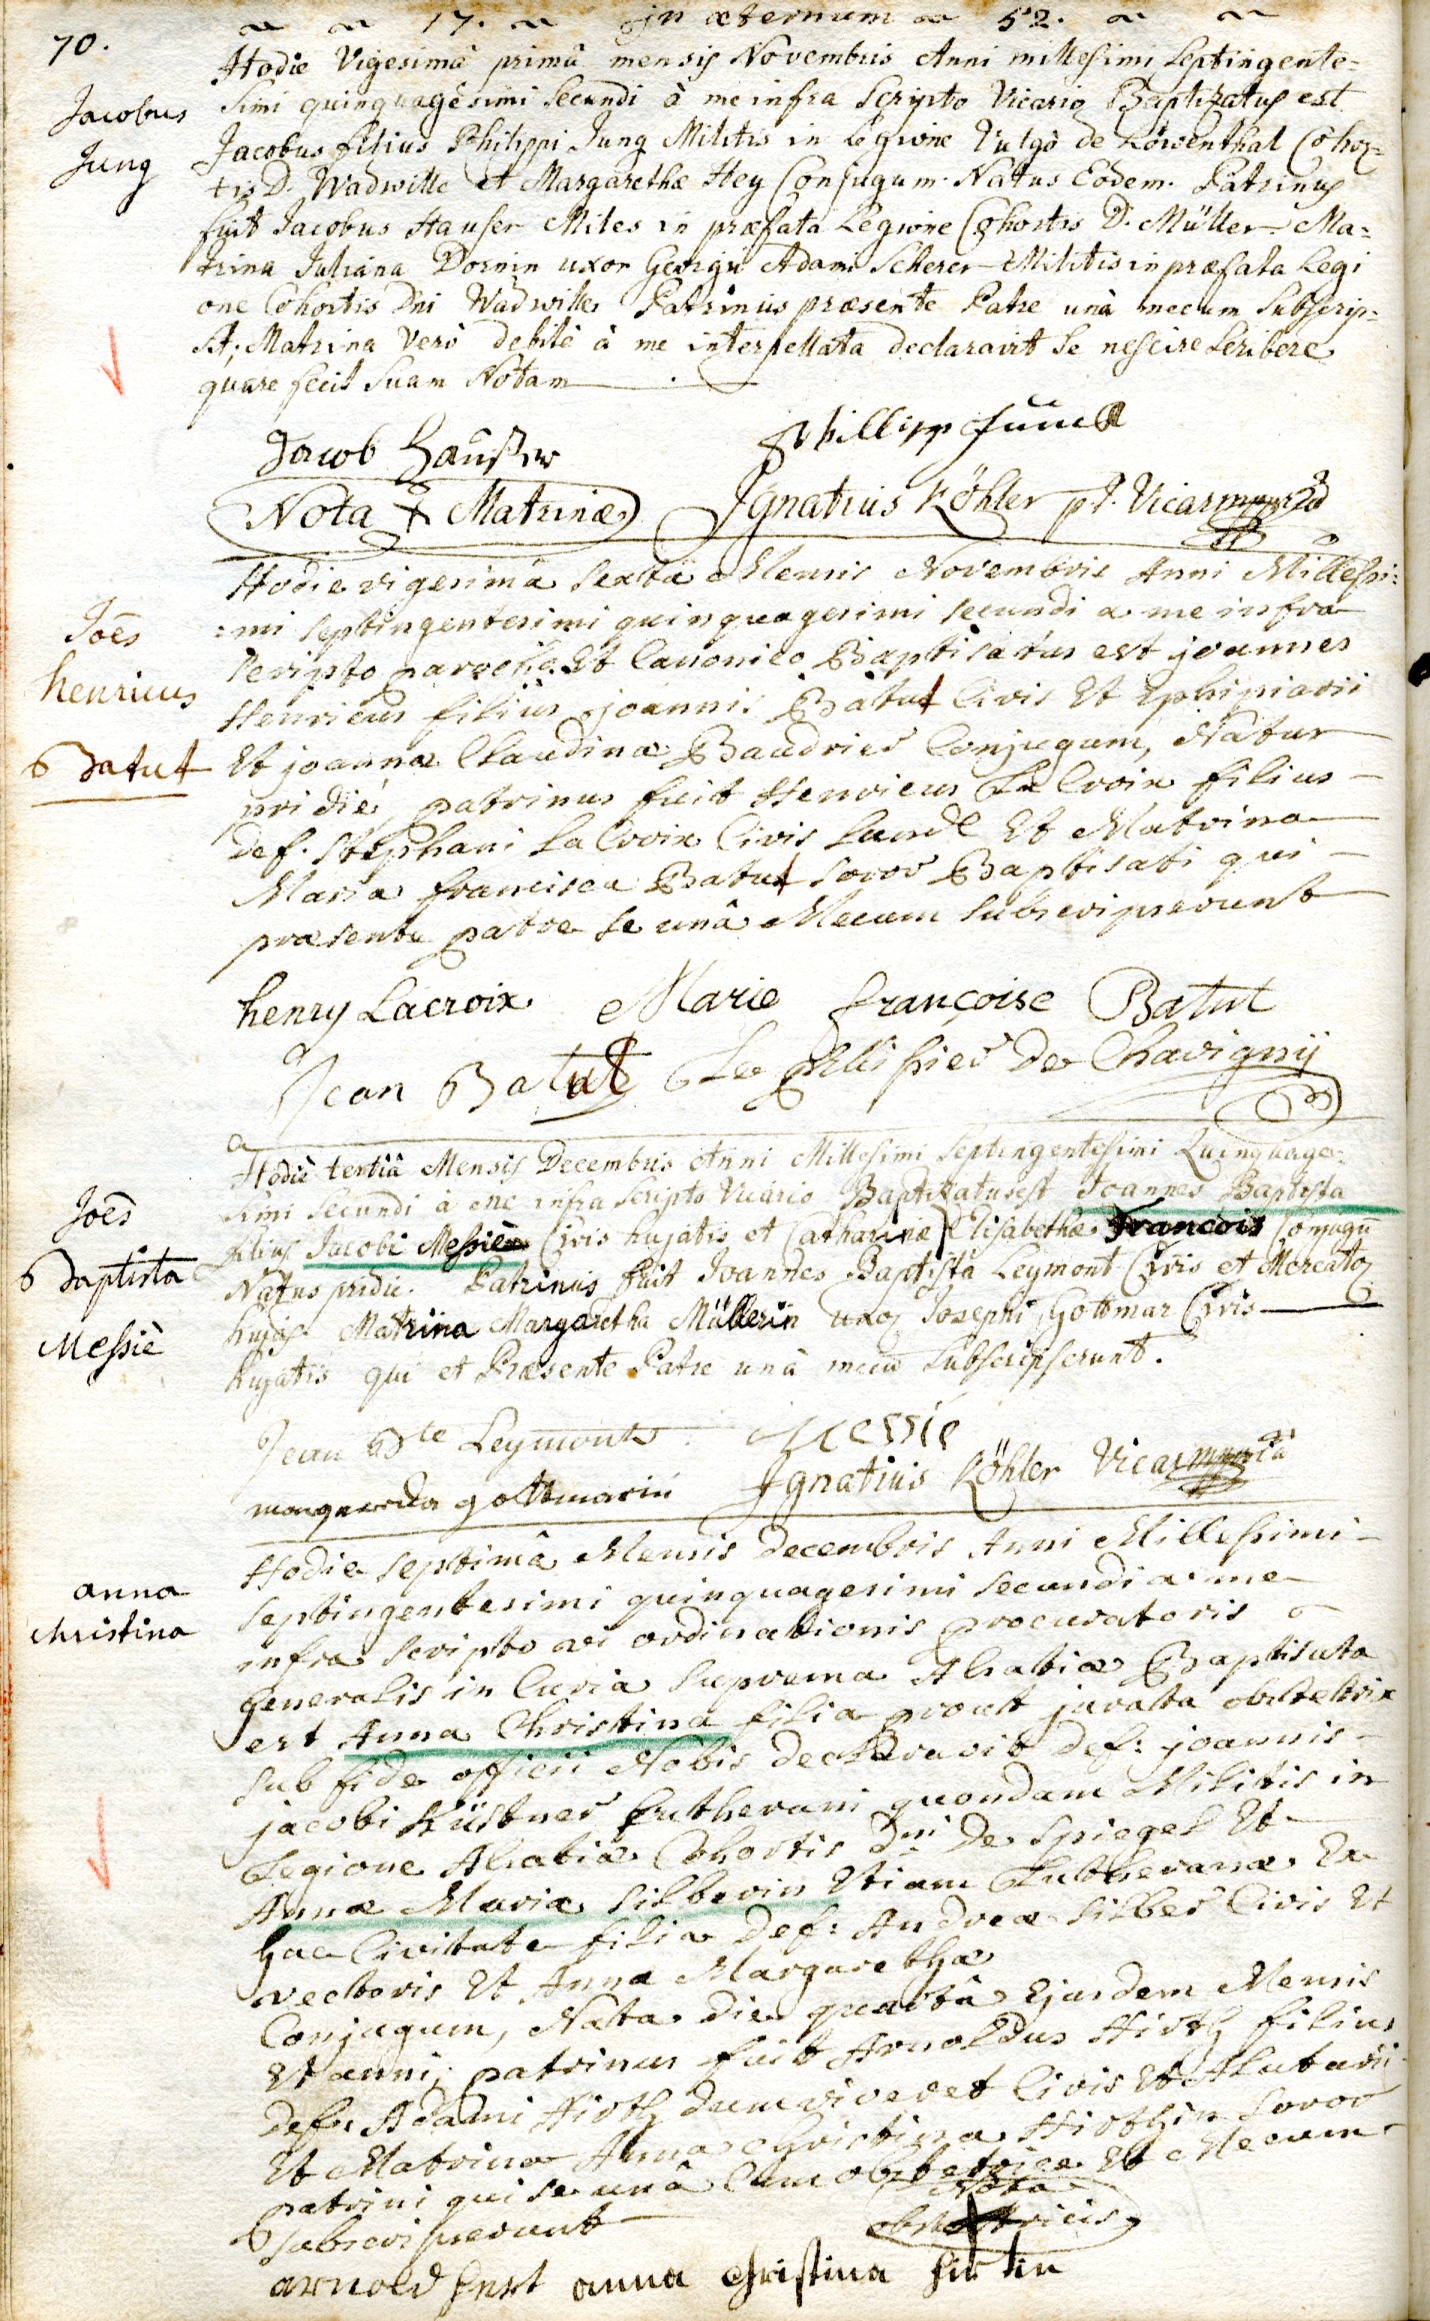 70.
17. In æternum 52.
Jacobus
Jung
Hodie Vigesimâ primâ mensis Novembris Anni millesimi Septingente=
simi quinquagesimi Secundi à me infra Scripto Vicario Baptizatus est
Jacobus filius Philippi Jung Militis in Legione Vulgò de Löwenthal Cohor=
tis D. Wadwille et Margarethæ Hey Conjugum. Natus Eodem. Patrinus
fuit Jacobus Hauser Miles in præfata Legione Cohortis D. Müller Ma=
trina Juliana Dornin uxor Georgii Adami Scherer Militis in præfata Legi
one Cohortis Dni Wadwille. Patrinus præsente Patre unà mecum Subscrip=
sit; Matrina Verò debitè à me interpellata declaravit Se nescire Scribere
quare fecit Suam Notam
Jacob Haußer
Phillipp Junck
Nota + Matrinæ
Ignatius Köhler p.t. Vicar
Joês
henricus
Batut
Hodie vigesimâ sextâ Mensis Novembris Anni Millessi=
=mi septingentesimi quinquagesimi secundi a me infra
scripto parocho Et Canonico Baptisatus est joannes
Henricus filius joannis Batut Civis Et Ephipiarii
Et joannæ Claudinæ Baudrier Conjugum, Natus
pridiè, patrinus fuit Henricus La Croix filius
def. Stephani La Croix Civis Et Matrina
Maria francisca Batut soror Baptisati qui
præsente patre se unâ Mecum subscripserunt
henry Lacroix Marie françoise Batut
Jean Batut Le pellissier De Chavignÿ
Joês
Baptista
Messiè
Hodie tertiâ Mensis Decembris Anni Millesimi Septingentesimi Quinquage=
simi Secundi à me infra Scripto Vicario Baptizatus est Joannes Baptista
filius Jacobi Messiè Civis hujatis et Catharinæ Elisabethæ Francois Conjugū
Natus pridie. Patrinus fuit Joannes Baptista Leymont Civis et Mercator
hujas. Matrina Margaretha Müllerin uxor Josephi Gottmar Civis
hujatis qui et Præsente Patre unà mecū Subscripserunt.
Jean Bte Leymont Messie
margareda gottmarin Ignatius Köhler Vicar
anna
christina
Hodie septimâ Mensis Decembris Anni Millessimi
septingentesimi quinquagesimi secundi a me
infra scripto vi ordinationis procuratoris
generalis in Curia suprema Alsatiæ Baptisata
est Anna Christina filia prout jurata obstetrix
sub fide officii Nobis declaravit def: joannis
jacobi Küstner Lutherani quondam Militis in
Legione Alsatiæ Cohortis Dni De Spiegel Et
Annæ Mariæ Silberin Etiam Lutheranæ Ex
hac Civitate filiæ def: Andreæ Silber Civis Et
vectoris Et Annæ Margarethæ
Conjugum, Nata die quartâ Ejusdem Mensis
Et anni, patrinus fuit Arnoldus Hirth filius
def. Adami Hirth dum viveret Civis Et Alutarii
Et Matrina Anna Christina Hirthin soror
patrini qui se unâ Cum obstetrice Et Mecum
subscripserunt
Nota
obstetricis
arnold hirt anna christina hirtin